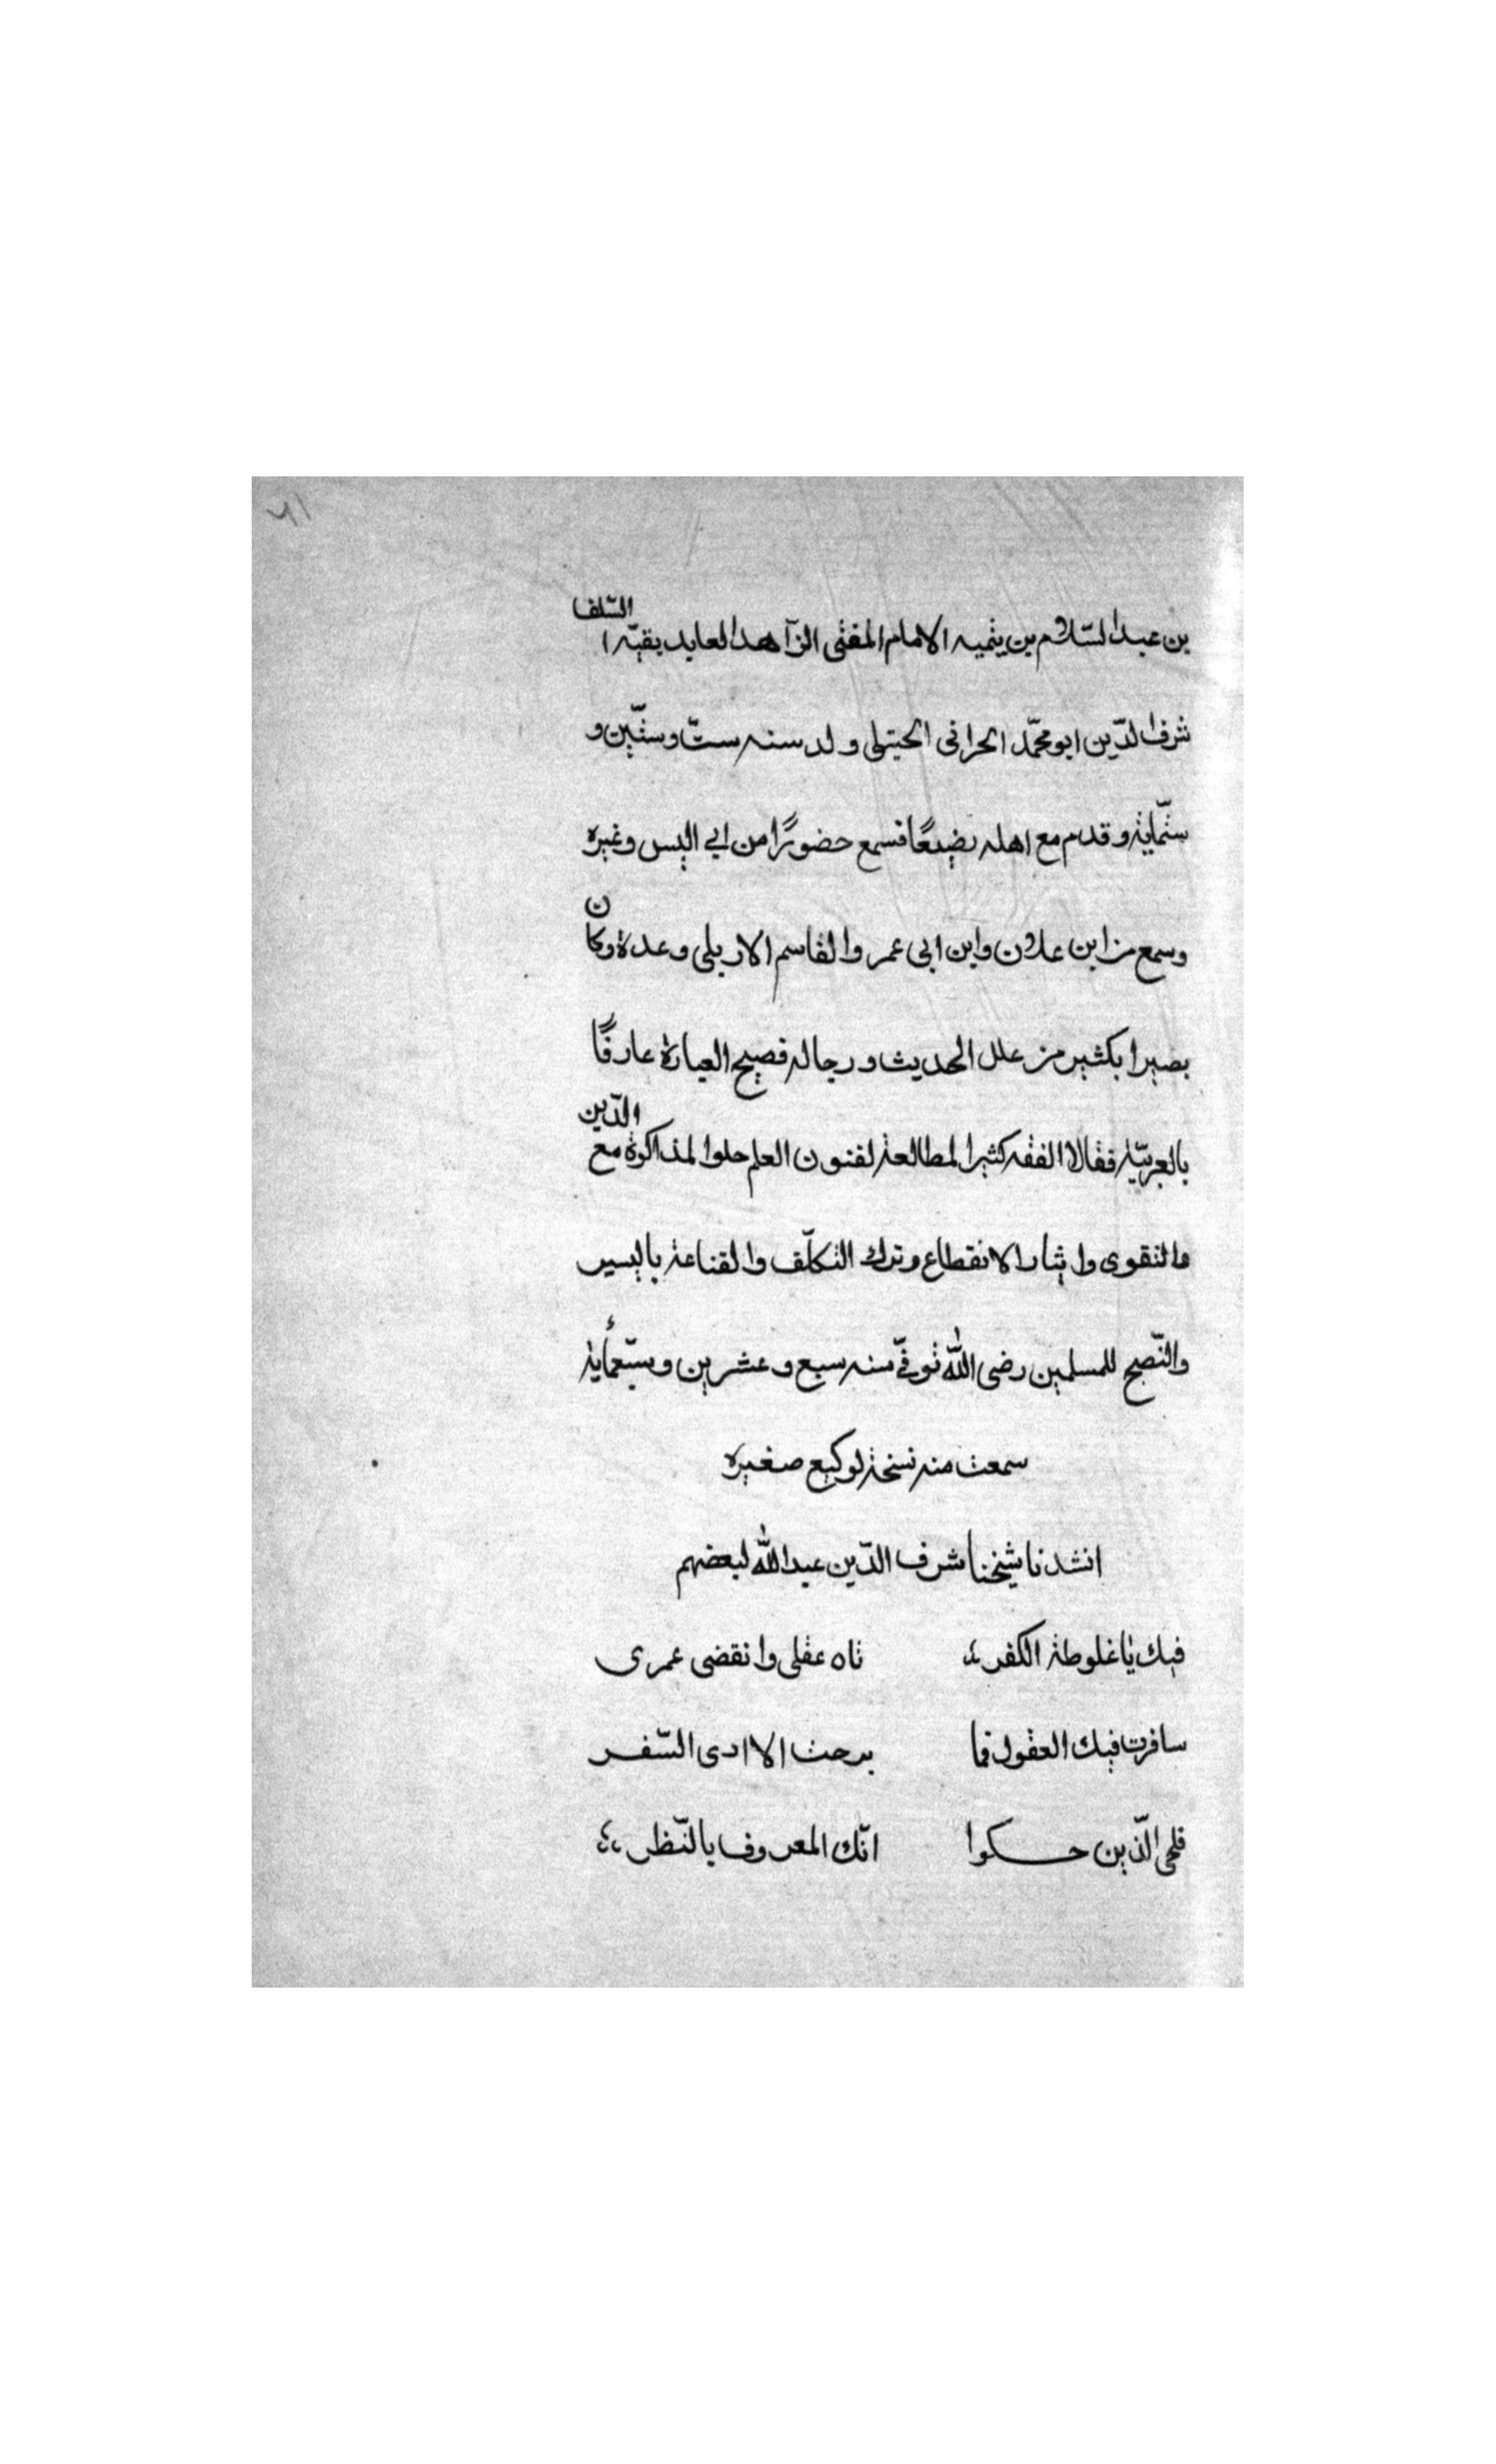 ٧١
بن عبد السّلام بن يثميه الامام المفتى الزآهد العابد بقيّة ا السّلف
شرف الدّين ابو محمّد الحرانى الحيتلى ولد سنه ستّ وستّين و
ستّماية وقدم مع اهله رضيعًا فسمع حضورًا من ابي اليس وغيره
وسمع من ابن علان وابن ابى عمر والقاسم الاربلى وعدة وكان
بصيرا بكثير من علل الحديث ورجاله فصيح العبارة عارفًا
بالعربيّة فقالا الفقه كثيرا لمطالعة لفنون العلم حلوا لمذاكرة مع الدّين
والتقوى وايثار الانقطاع وترك التكلّف والقناعة باليسير
والنّصح للمسلمين رضى الله توفّي سنه سبع وعشرين وسبّعماية
سمعت منه نسخة لوكيع صغيره
انشدنا شيخنا شرف الدّين عبد الله لبعضهم
فيك يا غلوطة الكفر تاه عقلى وانقضى عمرى
سافرت فيك العقول فما برحت الا ادى السّفر
فلحى الّذين حكوا انّك المعروف بالنّظر